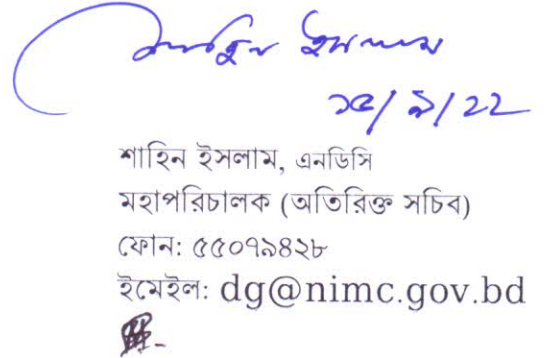 শাহিন ইসলাম
১৫/৯/২২
শাহিন ইসলাম, এনডিসি
মহাপরিচালক (অতিরিক্ত সচিব)
ফোন: ৫৫০৭৯৪২৮
ইমেইল: dg@nimc.gov.bd